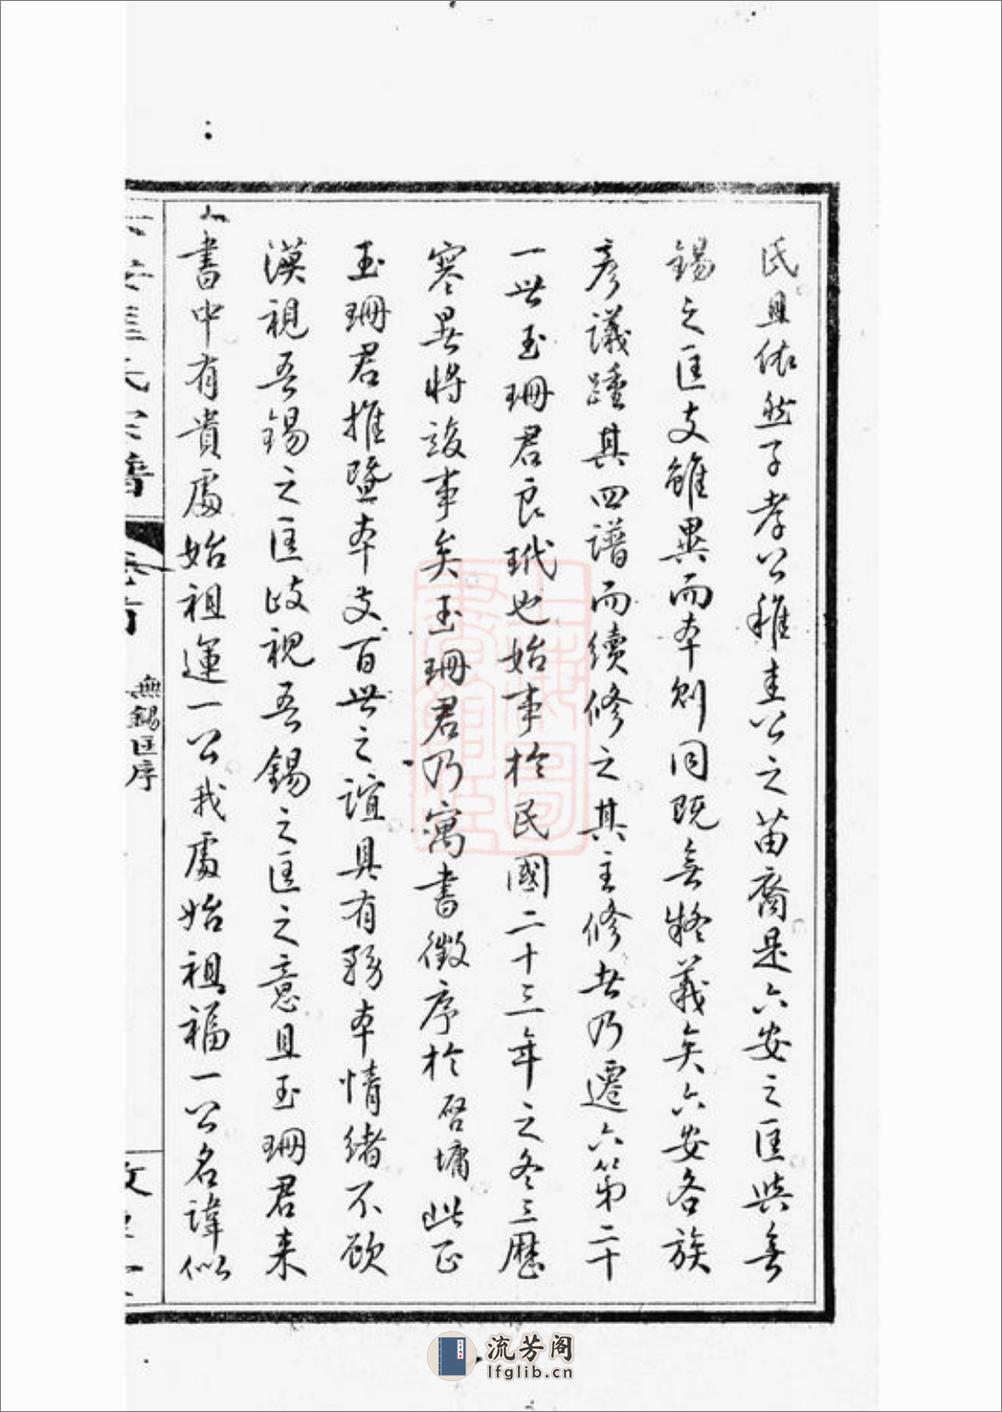 氏且依然子孝公稚圭公之苗裔是六安之匡與無
錫之匡支雖異而本則同既無疑義矣六安各族
彥議踵其四譜而續修之其主修者乃遷六第二十
一世玉珊君良玳也始事於民國二十三年之冬三歷
寒暑將竣事矣玉珊君乃寓書徵序於啓墉此正
玉珊君推暨本支百世之誼具有務本情緒不欲
漠視吾錫之匡歧視吾錫之匡之意且玉珊君来
書中有貴處始祖運一公我處始祖福一公名諱似
六安匡氏宗譜
卷首
無錫匡序
流芳阁
lfglib.cn